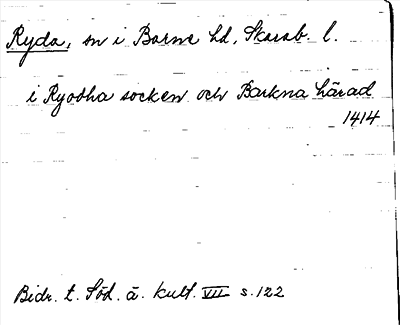 Ryda, sn i Barne hd, Skarab. l.
i Ryobha socken och Barkna härad
1414
Bidr. t. Söd. ä. kult. VII s. 122